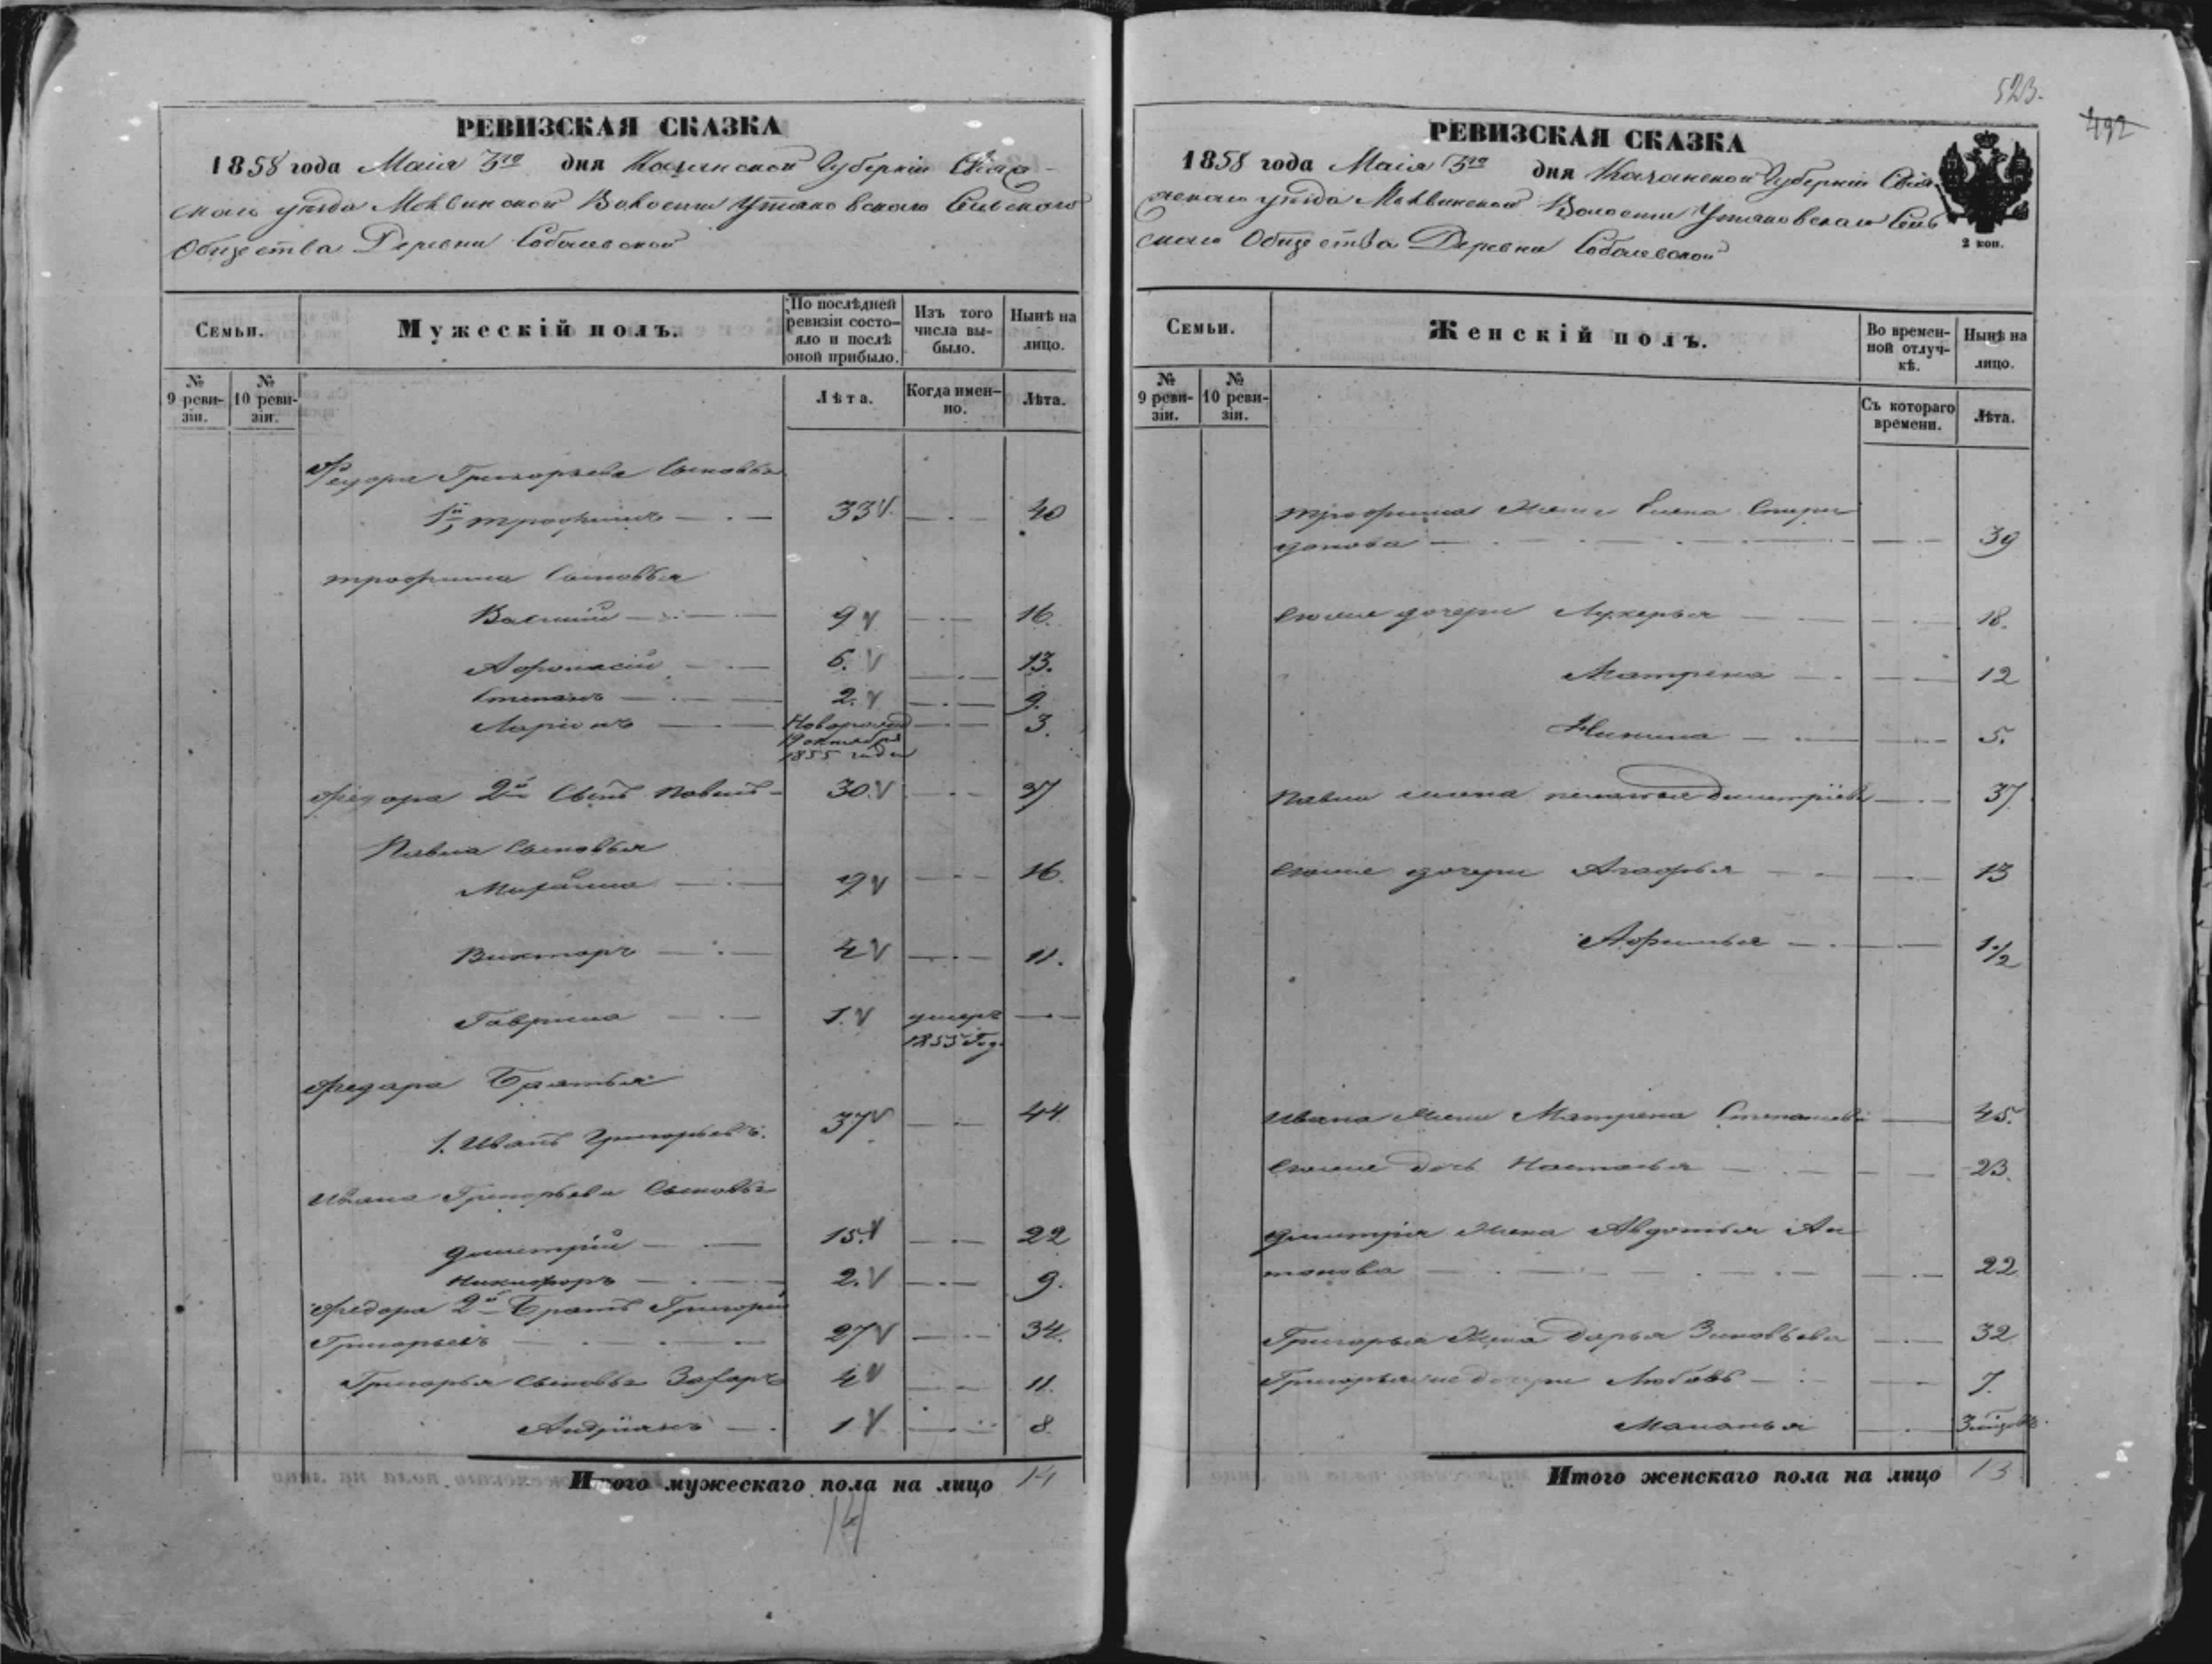 РЕВИЗСКАЯ СКАЗКА
1858 года Маія 3го дня Казанской Губерніи Свіяж-
скаго уѣзда Моквинской Волости Утяковскаго Сельскаго
Общества Деревни Собаевской
Семьи.
Мужескій полъ.
По послѣдней ревизіи состо-
яло и послѣ оной прибыло.
Изъ того числа вы-
было.
Нынѣ на лицо.
№ 9 реви-
зіи.
№ 10 реви-
зіи.
Лѣта.
Когда имен-
но.
Лѣта.
Федора Григорьева Сыновья
1й Трофимъ 33 40
Трофима Сыновья
Василій 9 16.
Афонасій 6. 13.
Степанъ 2. 9.
Ларіонъ Новорожд 3.
19 октября
1855 года
Федора 2й Сынъ Павелъ 30. 37
Павла Сыновья
Михайла 9 16.
Викторъ 4 11.
Гаврила 1. умеръ
1855 Год.
Федара Братья
1. Иванъ Григорьевъ. 37 44.
Ивана Григорьева Сыновья
Дмитрій 15. 22
Никифоръ 2. 9.
Федора 2й Братъ Григорій
Григорьевъ 27 34.
Григорья Сыновья Захаръ 4 11.
Андріянъ 1 8.
Итого мужескаго пола на лицо 14
14
523.
492
РЕВИЗСКАЯ СКАЗКА
1858 года Маія 3го дня Казанской Губерніи Свія-
жскаго уѣзда Моквинской Волости Утяковскаго Сель
скаго Общества Деревни Собаевской
2 коп.
Семьи.
Женскій полъ.
Во времен-
ной отлуч-
кѣ.
Нынѣ на лицо.
№ 9 реви-
зіи.
№ 10 реви-
зіи.
Съ котораго времени.
Лѣта.
Трофима Жена Елена Спири
донова 39
дочери Лукерья 18.
Матрена 12
5.
Павла жена Пелагея Дмитріева 37.
дочери Агафья 13
Афимья 1 1/2
Ивана Жена Матрена Степанова 45.
дочь Настасья 23.
Дмитрія Жена Авдотья Ан
тонова 22
Григорья Жена Дарья Зиновьева 32
дочери Любовь 7.
Маланья
Итого женскаго пола на лицо 13